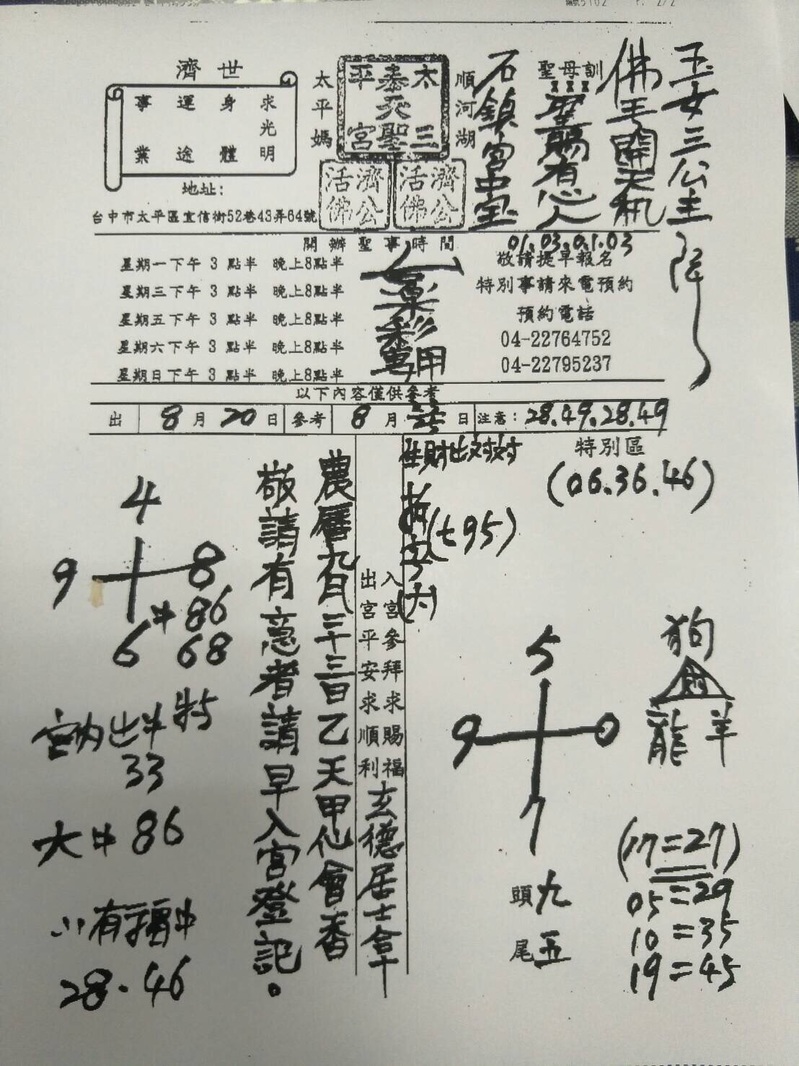 濟世
求光明
身體
運途
事業
地址:
台中市太平區宜信街52巷43弄64號
太平媽
太三
奉天聖
平宮
順河湖
濟公活佛
濟公活佛
聖母訓
玉女三公主降
佛手開天机
聖賜有心人
石鎮宮中宝
01.03.0.1.03
開辦聖事時間
星期一下午 3 點半 晚上8點半
星期三下午 3 點半 晚上8點半
星期五下午 3 點半 晚上8點半
星期六下午 3 點半 晚上8點半
星期日下午 3 點半 晚上8點半
敬請提早報名
特別事請來電預約
預約電話
04-22764752
04-22795237
以下內容僅供參考
出 8月20日 參考 8月 日 注意: 28.49.28.49
特別區
(06.36.46)
(七95)
4
9 8
6
中 86
68
宮內出牛特
33
大中 86
小有福中
28.46
農曆九月 三日乙天甲仙會香
敬請有意者請早入宮登記。
入宮參拜求賜福
出宮平安求順利
玄德居士拿
5
9 0
7
頭九
尾五
狗
龍 羊
(17=27)
05=29
10=35
19=45